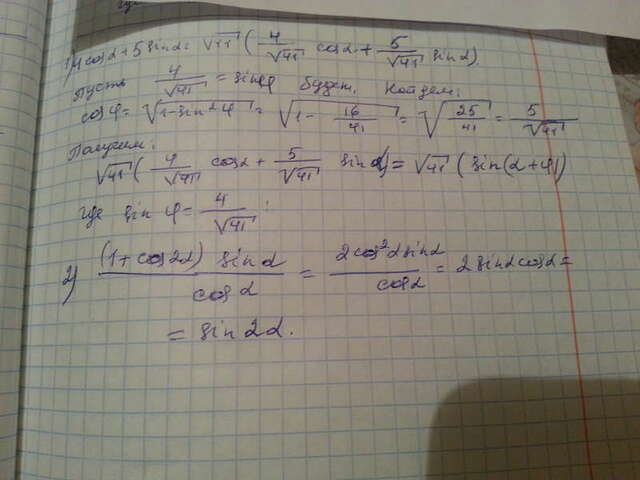 1) 4 cos α + 5 sin α = √41 (4/√41 cos α + 5/√41 sin α)
Пусть 4/√41 = sin φ будет. Найдем:
cos φ = √(1 - sin² φ) = √(1 - 16/41) = √(25/41) = 5/√41
Получим:
√41 (4/√41 cos α + 5/√41 sin α) = √41 (sin(α + φ))
где sin φ = 4/√41 ;
2) (1 + cos 2α) sin α / cos α = 2 cos² α sin α / cos α = 2 sin α cos α =
= sin 2α.